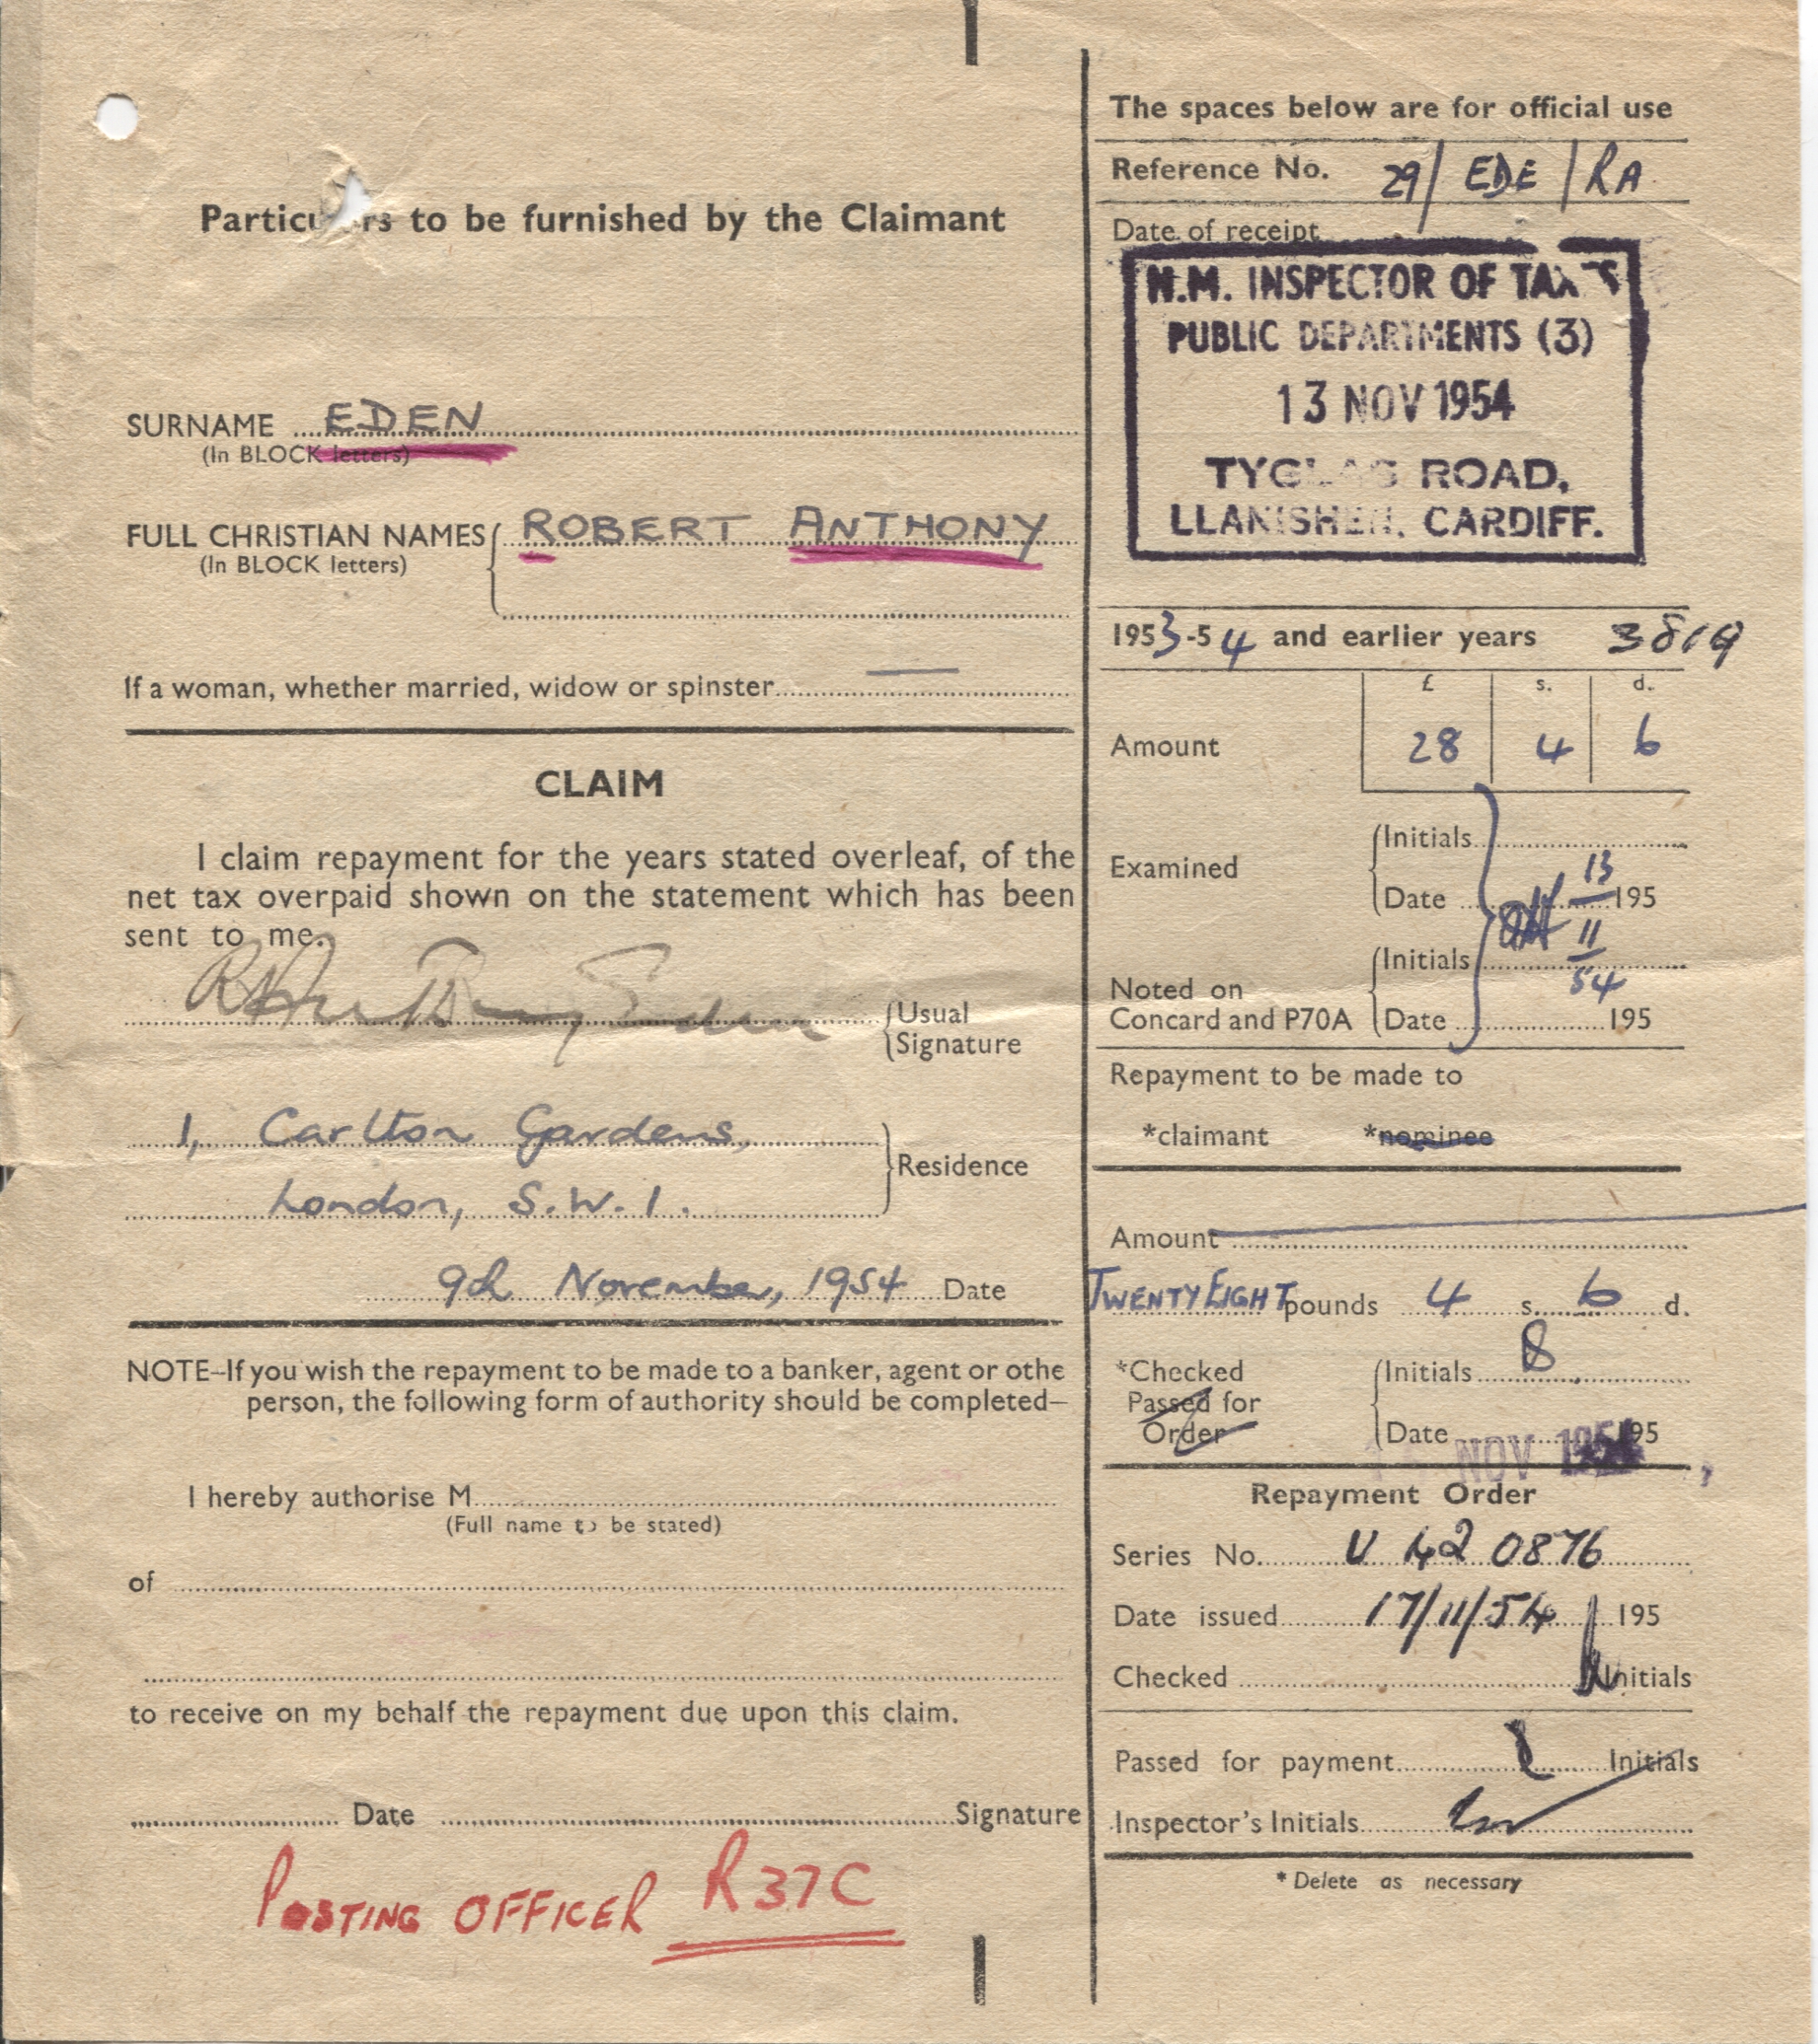 Particu rs to be furnished by the Claimant
SURNAME EDEN
(In BLOCK letters)
FULL CHRISTIAN NAMES ROBERT ANTHONY
(In BLOCK letters)
If a woman, whether married, widow or spinster —
CLAIM
I claim repayment for the years stated overleaf, of the
net tax overpaid shown on the statement which has been
sent to me.
R Anthony Eden Usual
Signature
1, Carlton Gardens,
Residence
London, S.W.1.
9th November, 1954 Date
NOTE–If you wish the repayment to be made to a banker, agent or othe
person, the following form of authority should be completed–
I hereby authorise M
(Full name to be stated)
of
to receive on my behalf the repayment due upon this claim.
Date Signature
POSTING OFFICER R37C
The spaces below are for official use
Reference No. 29/ EDE / RA
Date of receipt
H.M. INSPECTOR OF TAXES
PUBLIC DEPARTMENTS (3)
13 NOV 1954
TYGLAS ROAD,
LLANISHEN, CARDIFF.
1953-54 and earlier years 3819
£ s. d.
Amount 28 4 6
Initials
Examined
Date 13 195
11
Initials
54
Noted on
Concard and P70A Date 195
Repayment to be made to
*claimant *nominee
Amount
TWENTY EIGHT pounds 4 s. 6 d.
*Checked Initials
Passed for
Order Date NOV 1954 195
Repayment Order
Series No. U 42 0876
Date issued 17/11/54 195
Checked Initials
Passed for payment Initials
Inspector's Initials
* Delete as necessary